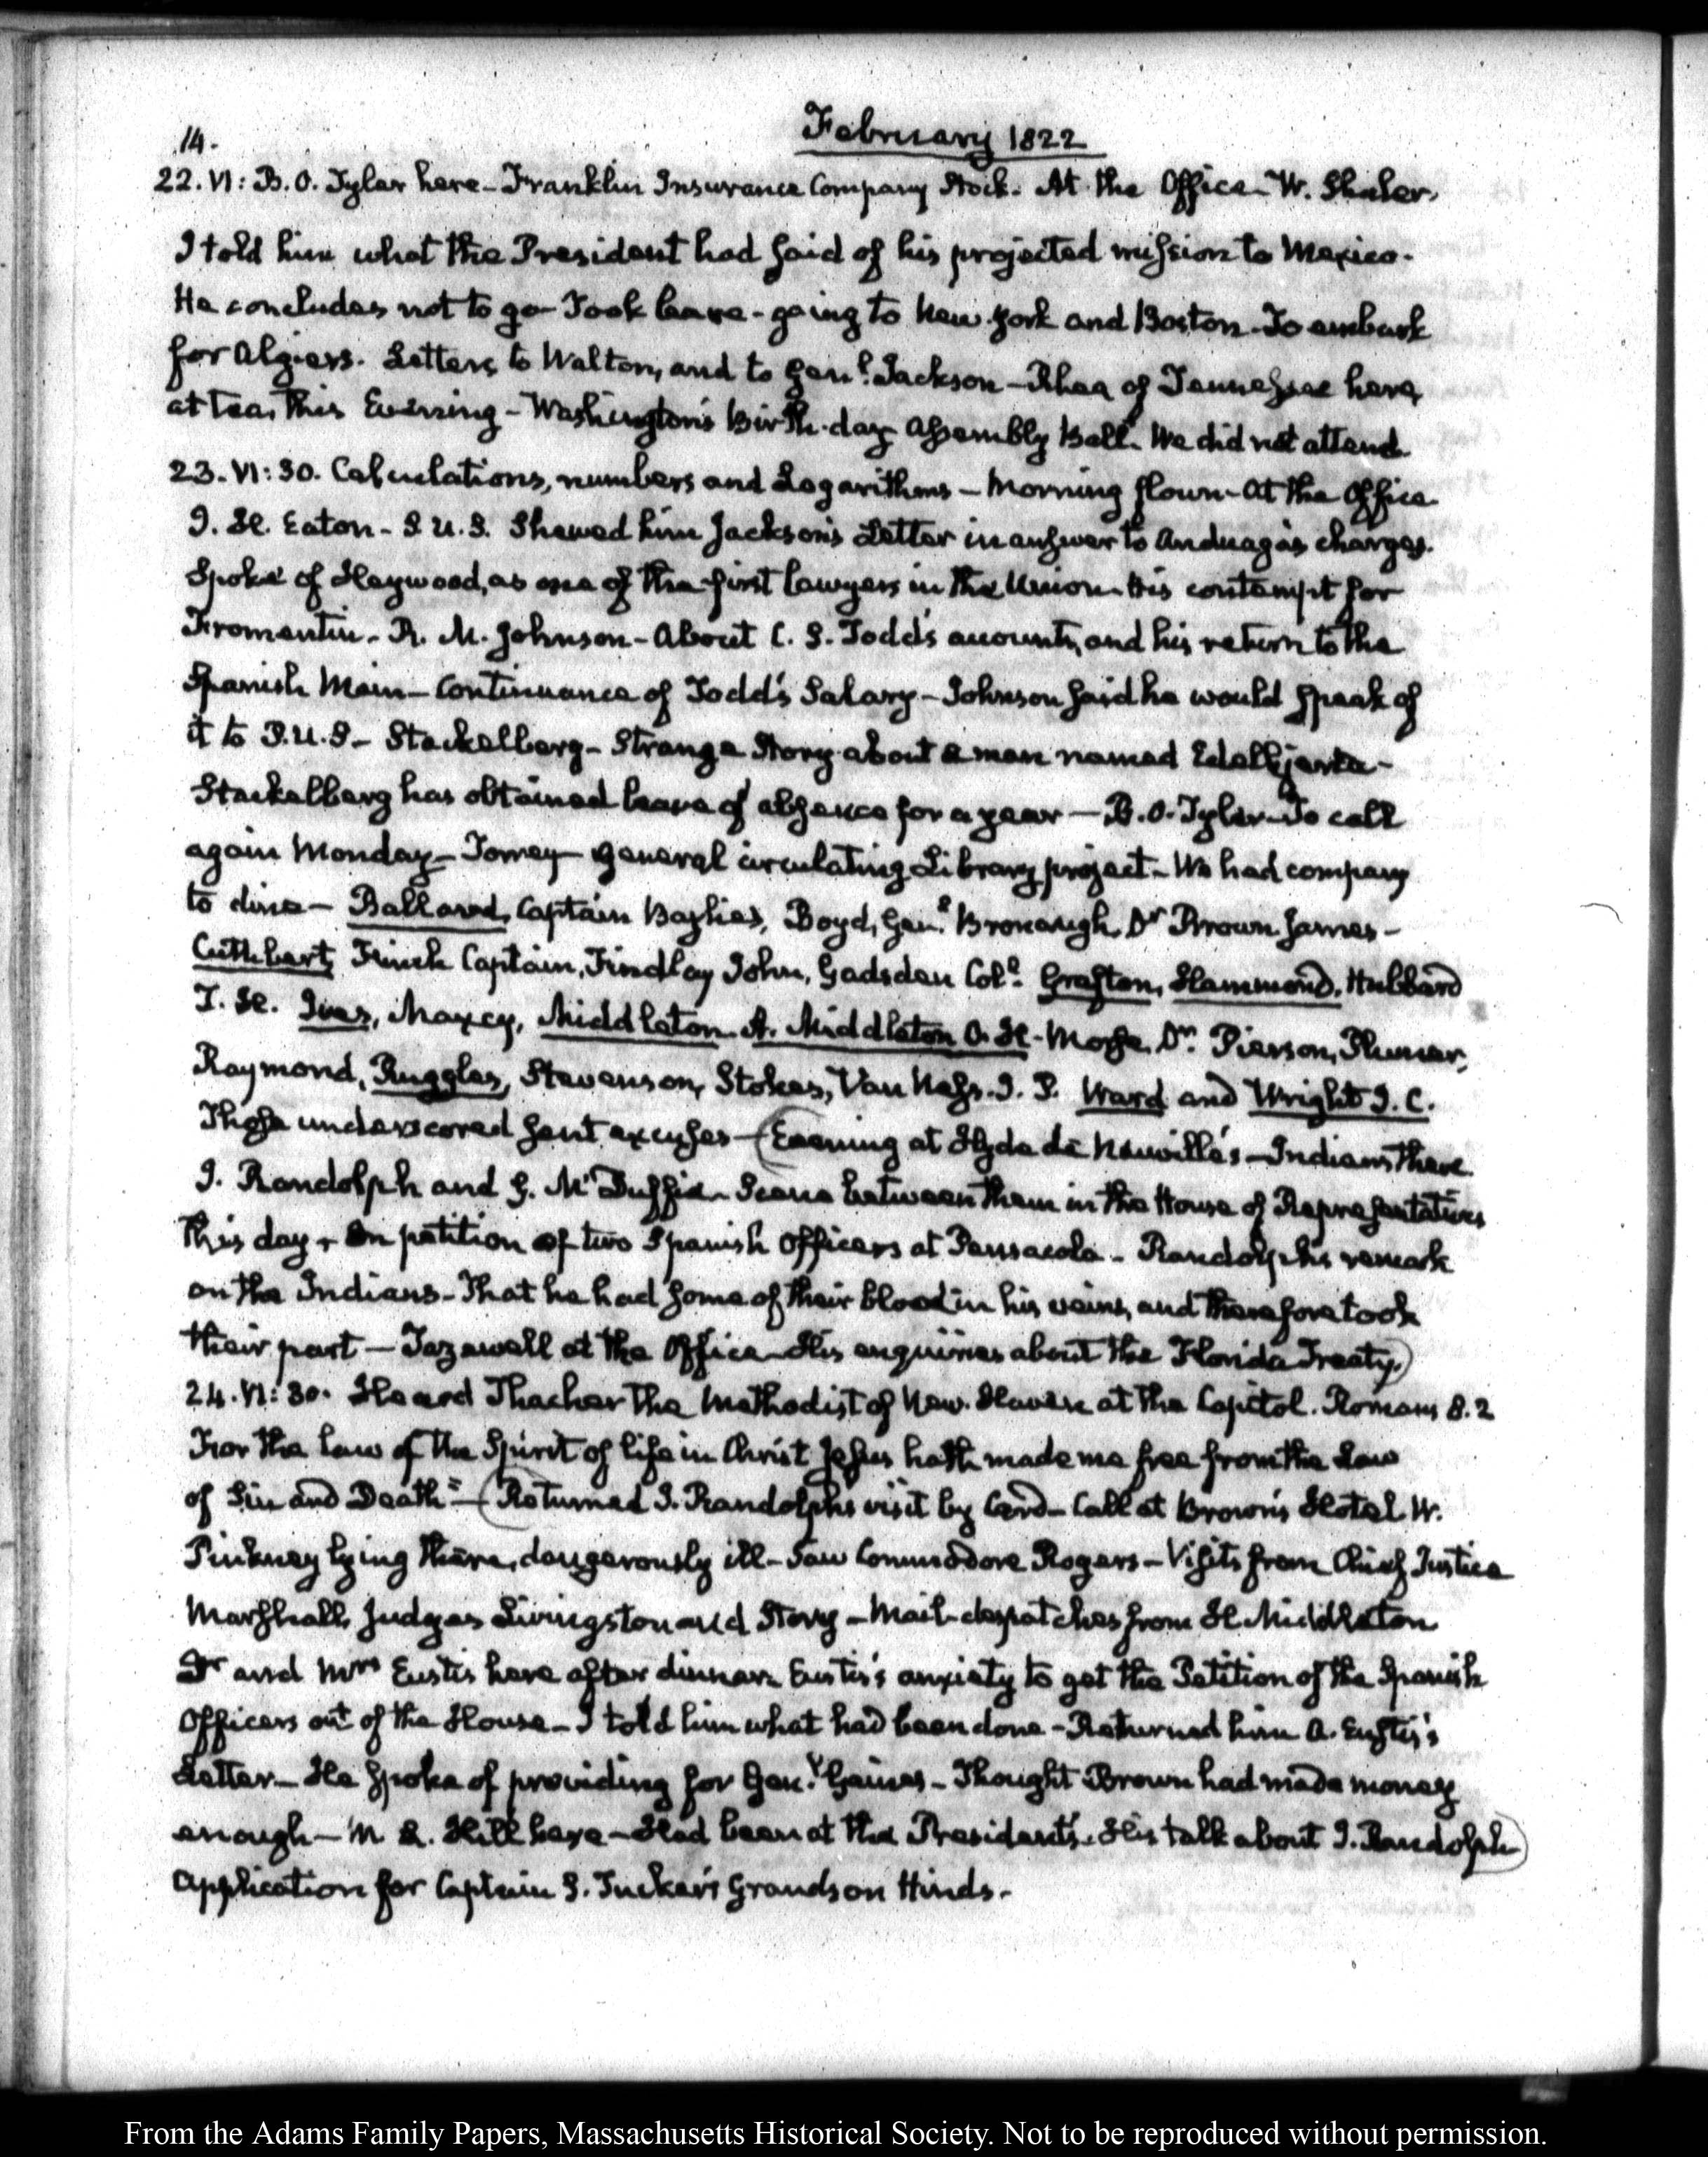 14.
February 1822
22. VI: B. O. Tyler here - Franklin Insurance Company Stock. At the Office - W. Shaler.
I told him what the President had said of his projected mission to Mexico.
He concludes not to go - Took leave - going to New York and Boston - To embark
for Algiers. Letters to Walton, and to Genl. Jackson - Rhea of Tennessee here
at tea, this Evening - Washington's Birth-day Assembly Ball. We did not attend.
23. VI: 30. Calculations, numbers and Logarithms - Morning flown - At the Office
J. H. Eaton - S. U. S. Shewed him Jackson's Letter in answer to Anduaga's charges.
Spoke of Haywood, as one of the first lawyers in the Union. His contempt for
Fromentin - R. M. Johnson - About C. S. Todd's accounts, and his return to the
Spanish Main - Continuance of Todd's Salary - Johnson said he would speak of
it to P. U. S - Stackelberg - Strange Story about a man named
Stackelberg has obtained leave of absence for a year - B. O. Tyler - To call
again Monday - Torrey - General circulating Library project - We had company
to dine - Ballard, Captain Baylies, Boyd, Genl. Bronaugh, Dr Brown James -
Cuthbert, Finch Captain, Findlay John, Gadsden Coll. Grafton, Hammond, Hubbard
T. H. Ives, Maxcy, Middleton A. Middleton O. H - Morse, Dr. Pierson, Plumer,
Raymond, Ruggles, Stevenson, Stokes, Van Ness. J. P. Ward and Wright J. C.
Those underscored sent excuses - (Evening at Hyde de Neuville's - Indians there
J. Randolph and G. McDuffie - Scene between them in the House of Representatives
this day - On petition of two Spanish Officers at Pensacola - Randolph's remark
on the Indians - That he had some of their blood in his veins, and therefore took
their part - Tazewell at the Office - His enquiries about the Florida Treaty.)
24. VI: 30. Heard Thacher the Methodist of New-Haven at the Capitol. Romans 8. 2
For the Law of the Spirit of life in Christ Jesus hath made me free from the Law
of Sin and Death" - (Returned J. Randolph's visit by Card - Call at Brown's Hotel W.
Pinkney lying there, dangerously ill - Saw Commodore Rogers - Visits from Chief Justice
Marshall, Judges Livingston and Story - Mail - despatches from H. Middleton
Dr and Mrs Eustis here after dinner. Eustis's anxiety to get the Petition of the Spanish
Officers out of the House - I told him what had been done - Returned him A. Eustis's
Letter - He spoke of providing for Genl. Gaines - Thought Brown had made money
enough - M L. Hill here - Had been at the President's. His talk about J. Randolph)
Application for Captain S. Tucker's Grandson Hinds.
From the Adams Family Papers, Massachusetts Historical Society. Not to be reproduced without permission.